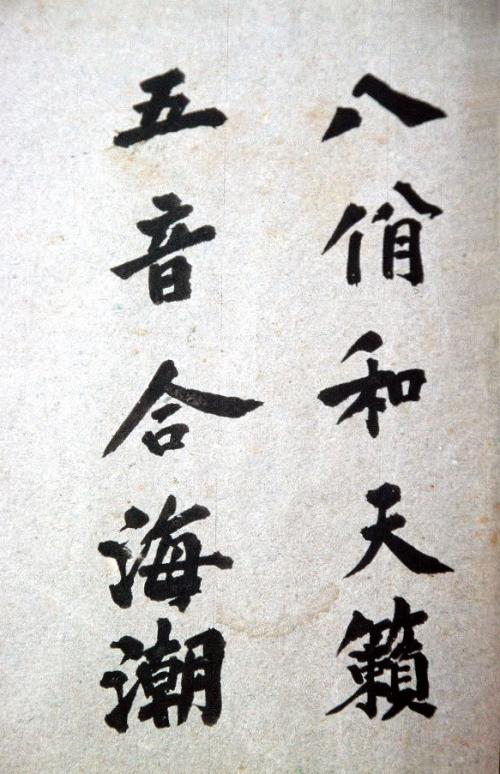 八佾和天籟
五音合海潮